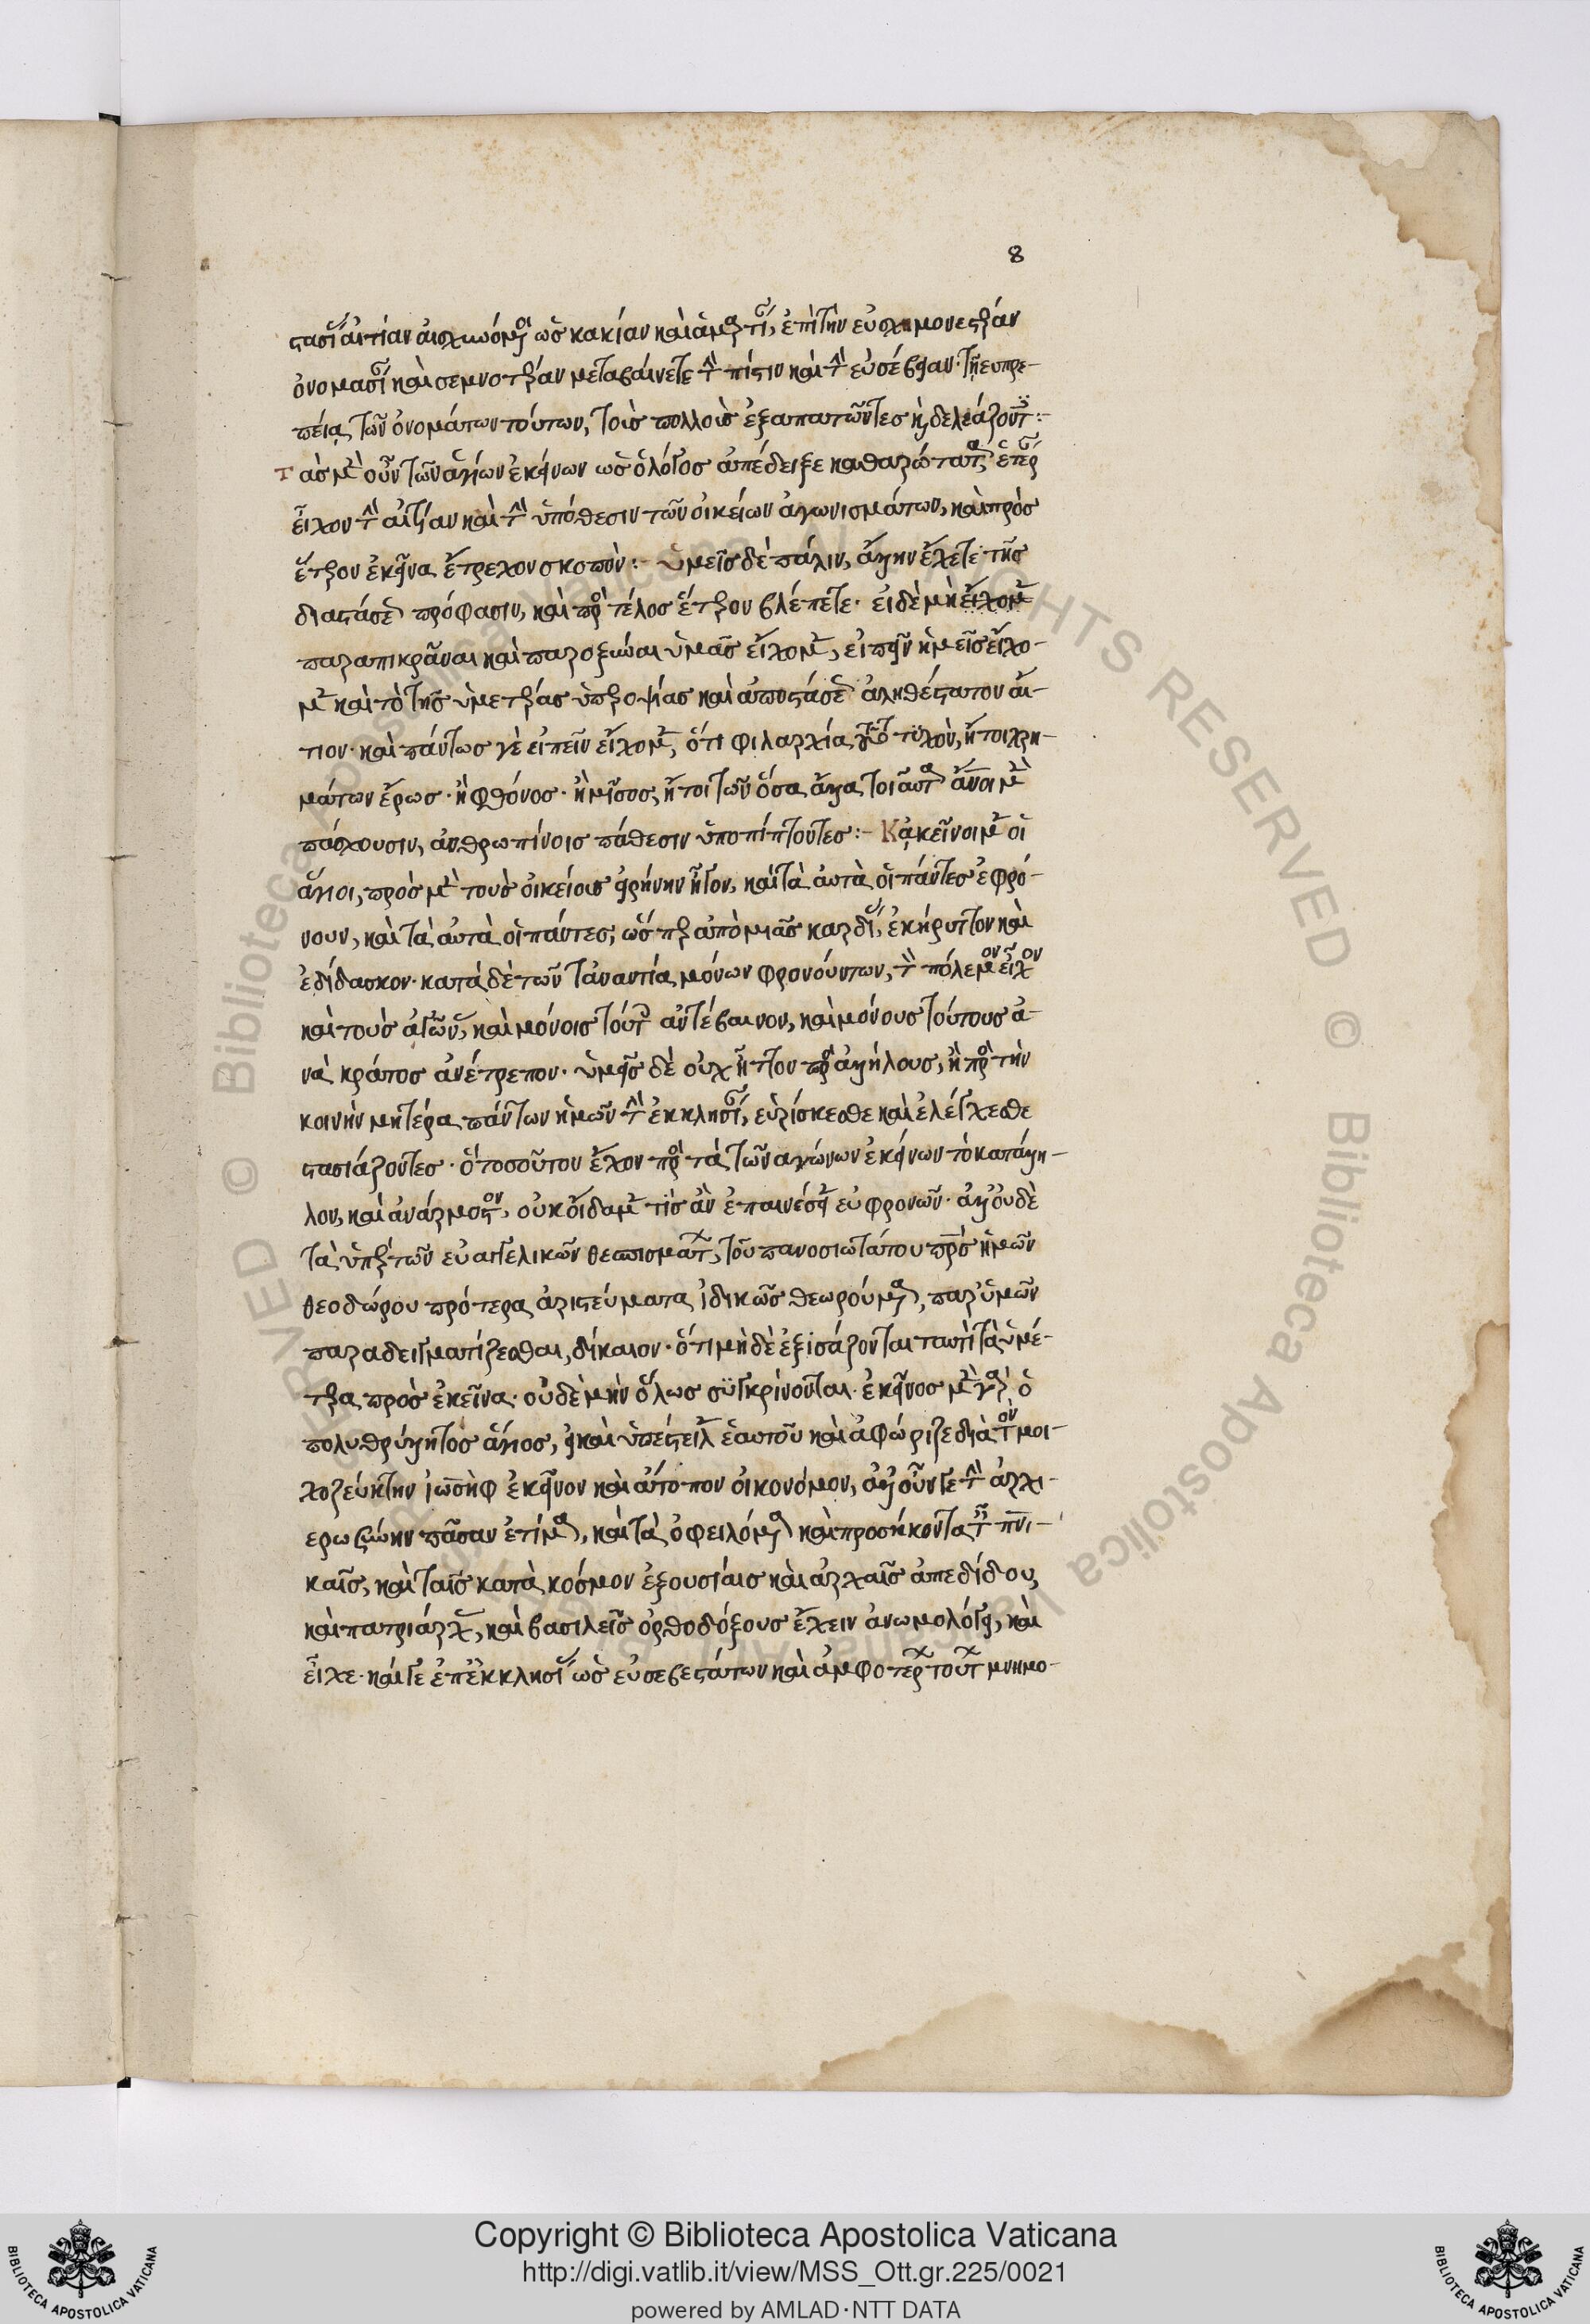 8
στάσεως αἰτίαν αἰσχυνόμενοι ὡς κακίαν καὶ ἁμαρτίαν, ἐπὶ τὴν εὐσχημονεστέραν
ὀνομασίαν καὶ σεμνοτέραν μεταβαίνετε τὴν πίστιν καὶ τὴν εὐσέβειαν· τῇ εὐπρε-
πείᾳ τῶν ὀνομάτων τούτων, τοὺς πολλοὺς ἐξαπατῶντες ἢ δελεάζοντες:-
Τὰς μὲν οὖν τῶν ἁγίων ἐκείνων ὡς ὁ λόγος ἀπέδειξε καθαρώτατα
εἶχον τὴν αἰτίαν καὶ τὴν ὑπόθεσιν τῶν οἰκείων ἀγωνισμάτων, καὶ πρὸς
ἕτερον ἐκεῖνα ἔτρεχον σκοπὸν:- Ὑμεῖς δὲ πάλιν, ἄλλην ἔχετε τῆς
διαστάσεως πρόφασιν, καὶ πρὸς τέλος ἕτερον βλέπετε· εἰ δὲ μὴ εἴχομεν
παραπικράναι καὶ παροξῦναι ὑμᾶς εἴχομεν, εἰπεῖν ἡμεῖς εἴχο-
μεν καὶ τὸ τῆς ὑμετέρας ὑπεροψίας καὶ ἀποστάσεως ἀληθέστατον αἴ-
τιον· καὶ πάντως γε εἰπεῖν εἴχομεν, ὅτι φιλαρχία τυχὸν, ἤτοι χρη-
μάτων ἔρως· ἢ φθόνος· ἢ μῖσος, ἤτοι τῶν ὅσα ἄλλα τοιαῦτα ἄνθρωποι μὲν
πάσχουσιν, ἀνθρωπίνοις πάθεσιν ὑποπίπτοντες:- Κἀκεῖνοι μὲν οἱ
ἅγιοι, πρὸς μὲν τοὺς οἰκείους εἰρήνην ἦγον, καὶ τὰ αὐτὰ οἱ πάντες ἐφρό-
νουν, καὶ τὰ αὐτὰ οἱ πάντες, ὥσπερ ἀπὸ μιᾶς καρδίας, ἐκήρυττον καὶ
ἐδίδασκον· κατὰ δὲ τῶν τἀναντία μόνων φρονούντων, τὸν πόλεμον εἶχον
καὶ τοὺς ἀγῶνας, καὶ μόνοις τούτοις ἀντέβαινον, καὶ μόνους τούτους ἀ-
νὰ κράτος ἀνέτρεπον· ὑμεῖς δὲ οὐχ ἧττον πρὸς ἀλλήλους, ἢ πρὸς τὴν
κοινὴν μητέρα πάντων ἡμῶν τὴν ἐκκλησίαν, εὑρίσκεσθε καὶ ἐλέγχεσθε
στασιάζοντες· ὃ τοσοῦτον ἔχον πρὸς τὰ τῶν ἀγώνων ἐκείνων τὸ κατάλλη-
λον, καὶ ἀνάρμοστον, οὐκ οἴδαμεν τίς ἂν ἐπαινέσειεν εὐφρονῶν· ἀλλ' οὐδὲ
τὰ ὑπὲρ τῶν εὐαγγελικῶν θεσπισμάτων, τοῦ πανοσιωτάτου πατρὸς ἡμῶν
θεοδώρου πρότερα ἀριστεύματα ἰδικῶς θεωρούμενα, παρ' ὑμῶν
παραδειγματίζεσθαι, δίκαιον· ὅτι μὴ δὲ ἐξισάζονται ταυτὶ τὰ ὑμέ-
τερα πρὸς ἐκεῖνα· οὐδὲ μὴν ὅλως συγκρίνονται· ἐκεῖνος μὲν γὰρ ὁ
πολυθρύλλητος ἅγιος, εἰ καὶ ὑπέστειλεν ἑαυτοῦ καὶ ἀφώριζε διὰ τὸν μοι-
χοζεύκτην ἰωσὴφ ἐκεῖνον καὶ ἄτοπον οἰκονόμον, ἀλλ' οὖν γε τὴν ἀρχι-
ερωσύνην πᾶσαν ἐτίμα, καὶ τὰ ὀφειλόμενα καὶ προσήκοντα ταῖς πνευματι-
καῖς, καὶ ταῖς κατὰ κόσμον ἐξουσίαις καὶ ἀρχαῖς ἀπεδίδου,
καὶ πατριάρχας, καὶ βασιλεῖς ὀρθοδόξους ἔχειν ἀνωμολόγει, καὶ
εἶχε· καί γε ἐπ' ἐκκλησίας ὡς εὐσεβεστάτων καὶ ἀμφοτέρων τούτων μνημο-
Copyright © Biblioteca Apostolica Vaticana
http://digi.vatlib.it/view/MSS_Ott.gr.225/0021
powered by AMLAD·NTT DATA